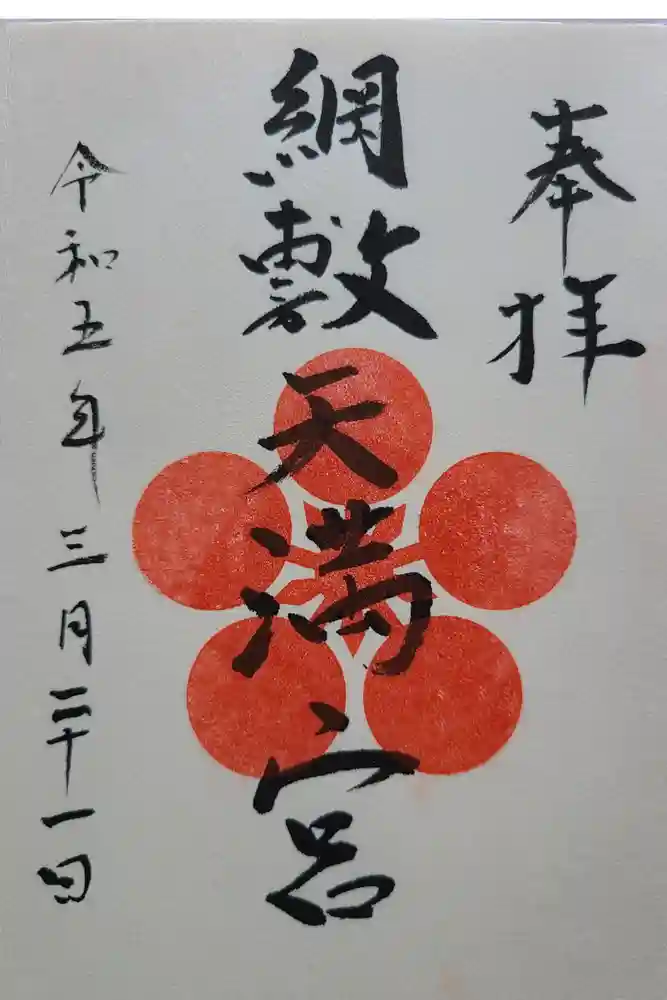 奉拝
綱敷天満宮
令和五年三月二十一日